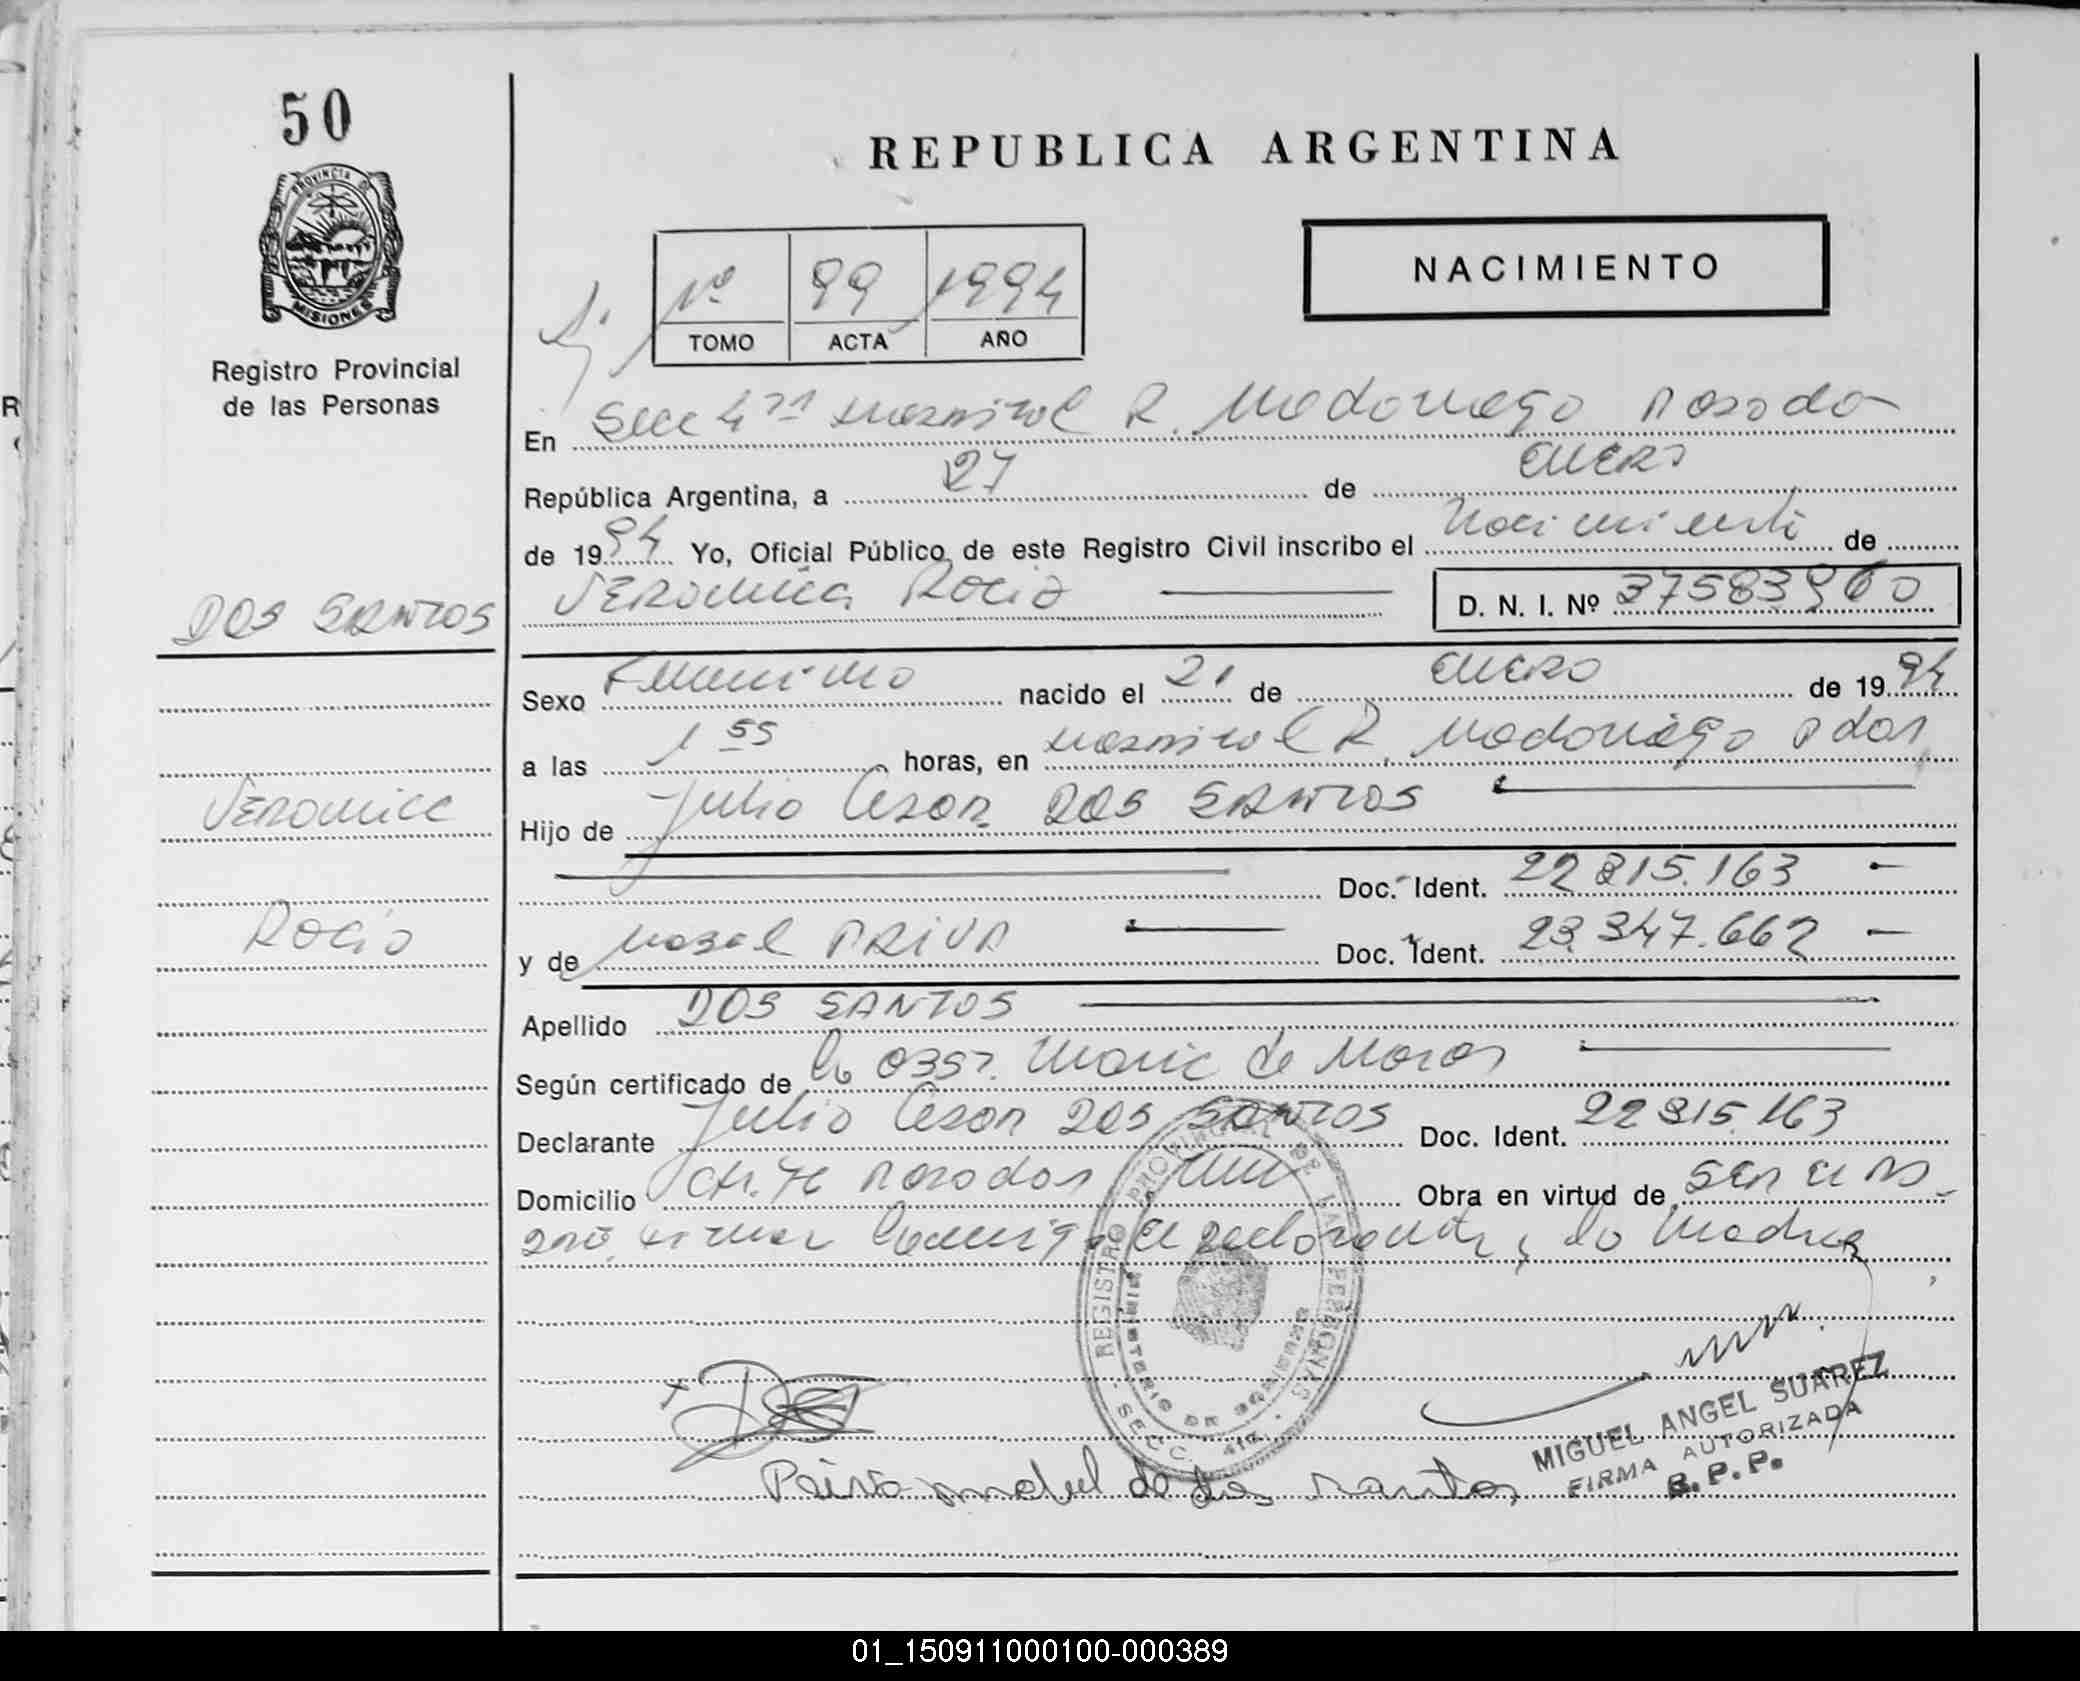 50
PROVINCIA DE
MISIONES
Registro Provincial
de las Personas
REPUBLICA ARGENTINA
NACIMIENTO
Nº 99 1994
TOMO ACTA AÑO
En Secc 4ta Hospital R. Madariaga Posadas
República Argentina, a 27 de Enero
de 1994 Yo, Oficial Público de este Registro Civil inscribo el Nacimiento de
DOS SANTOS
VERONICA Rocio
D. N. I. Nº 37583960
Sexo Femenino nacido el 21 de Enero de 1994
a las 1 55 horas, en Hospital R. Madariaga Pdas
Veronica
Hijo de Julio Cesar DOS SANTOS
Doc. Ident. 22 815.163
Rocio
y de Mabel PAIVA Doc. Ident. 23.347.662
Apellido DOS SANTOS
Según certificado de la Obst. Maria de
Declarante Julio Cesar DOS SANTOS Doc. Ident. 22 815.163
Domicilio 76 Posadas Mnes Obra en virtud de ser el Pa
dre. Firman conmigo el declarante y la Madre
REGISTRO PROVINCIAL DE LAS PERSONAS
MINISTERIO DE GOBIERNO
SECC. 4ta
MIGUEL ANGEL SUAREZ
FIRMA AUTORIZADA
R.P.P.
Paiva mabel de dos santos
01_150911000100-000389